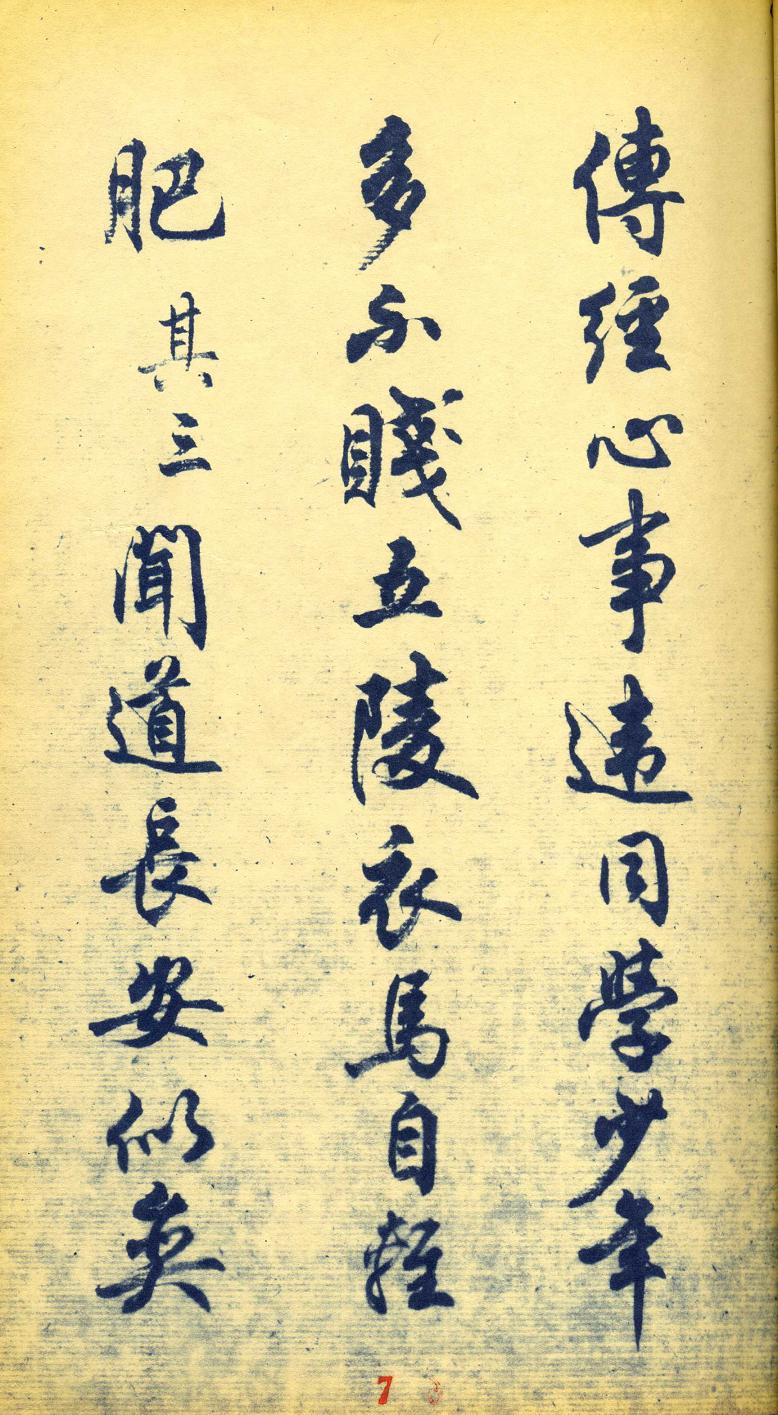 傳經心事違同學少年
多不賤五陵衣馬自輕
肥其三聞道長安似奕
7